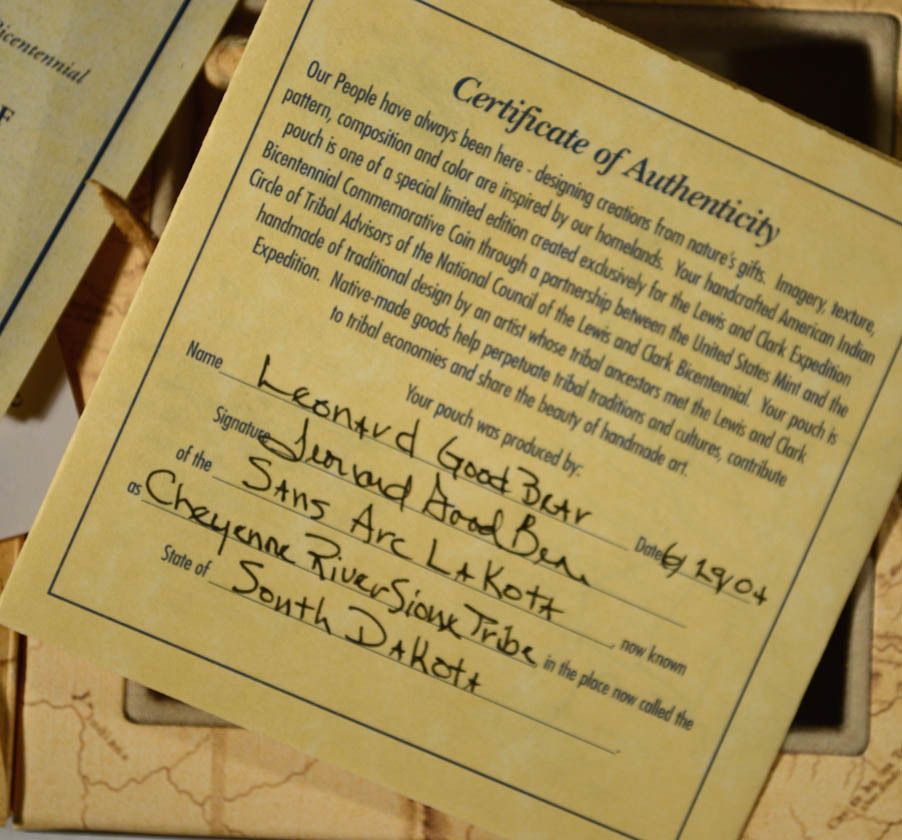 Bicentennial
F
Certificate of Authenticity
Our People have always been here - designing creations from nature's gifts. Imagery, texture,
pattern, composition and color are inspired by our homelands. Your handcrafted American Indian
pouch is one of a special limited edition created exclusively for the Lewis and Clark Expedition
Bicentennial Commemorative Coin through a partnership between the United States Mint and the
Circle of Tribal Advisors of the National Council of the Lewis and Clark Bicentennial. Your pouch is
handmade of traditional design by an artist whose tribal ancestors met the Lewis and Clark
Expedition. Native-made goods help perpetuate tribal traditions and cultures, contribute
to tribal economies and share the beauty of handmade art.
Your pouch was produced by:
Name Leonard Good Bear
Signature Leonard Good Bear Date 6/29/04
of the Sans Arc Lakota, now known
as Cheyenne River Sioux Tribe in the place now called the
State of South Dakota.